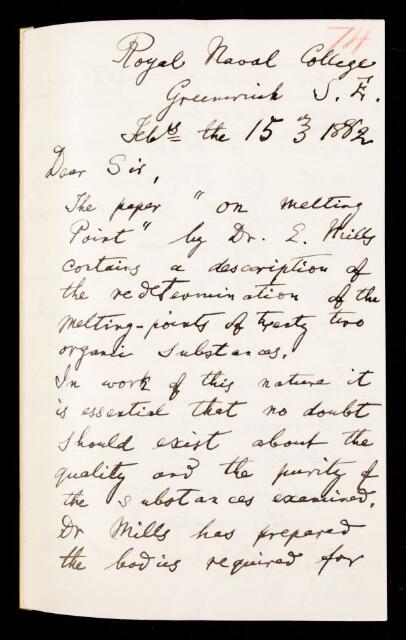 74
Royal Naval College
Greenwich S. E.
the 15 1882
Dear Sir,
The paper " on Melting
Point" by Dr. E. Mills
contains a description of
the redetermination of the
melting-points of twenty two
organic substances.
In work of this nature it
is essential that no doubt
should exist about the
quality and the purity of
the substances examined.
Dr Mills has prepared
the bodies required for